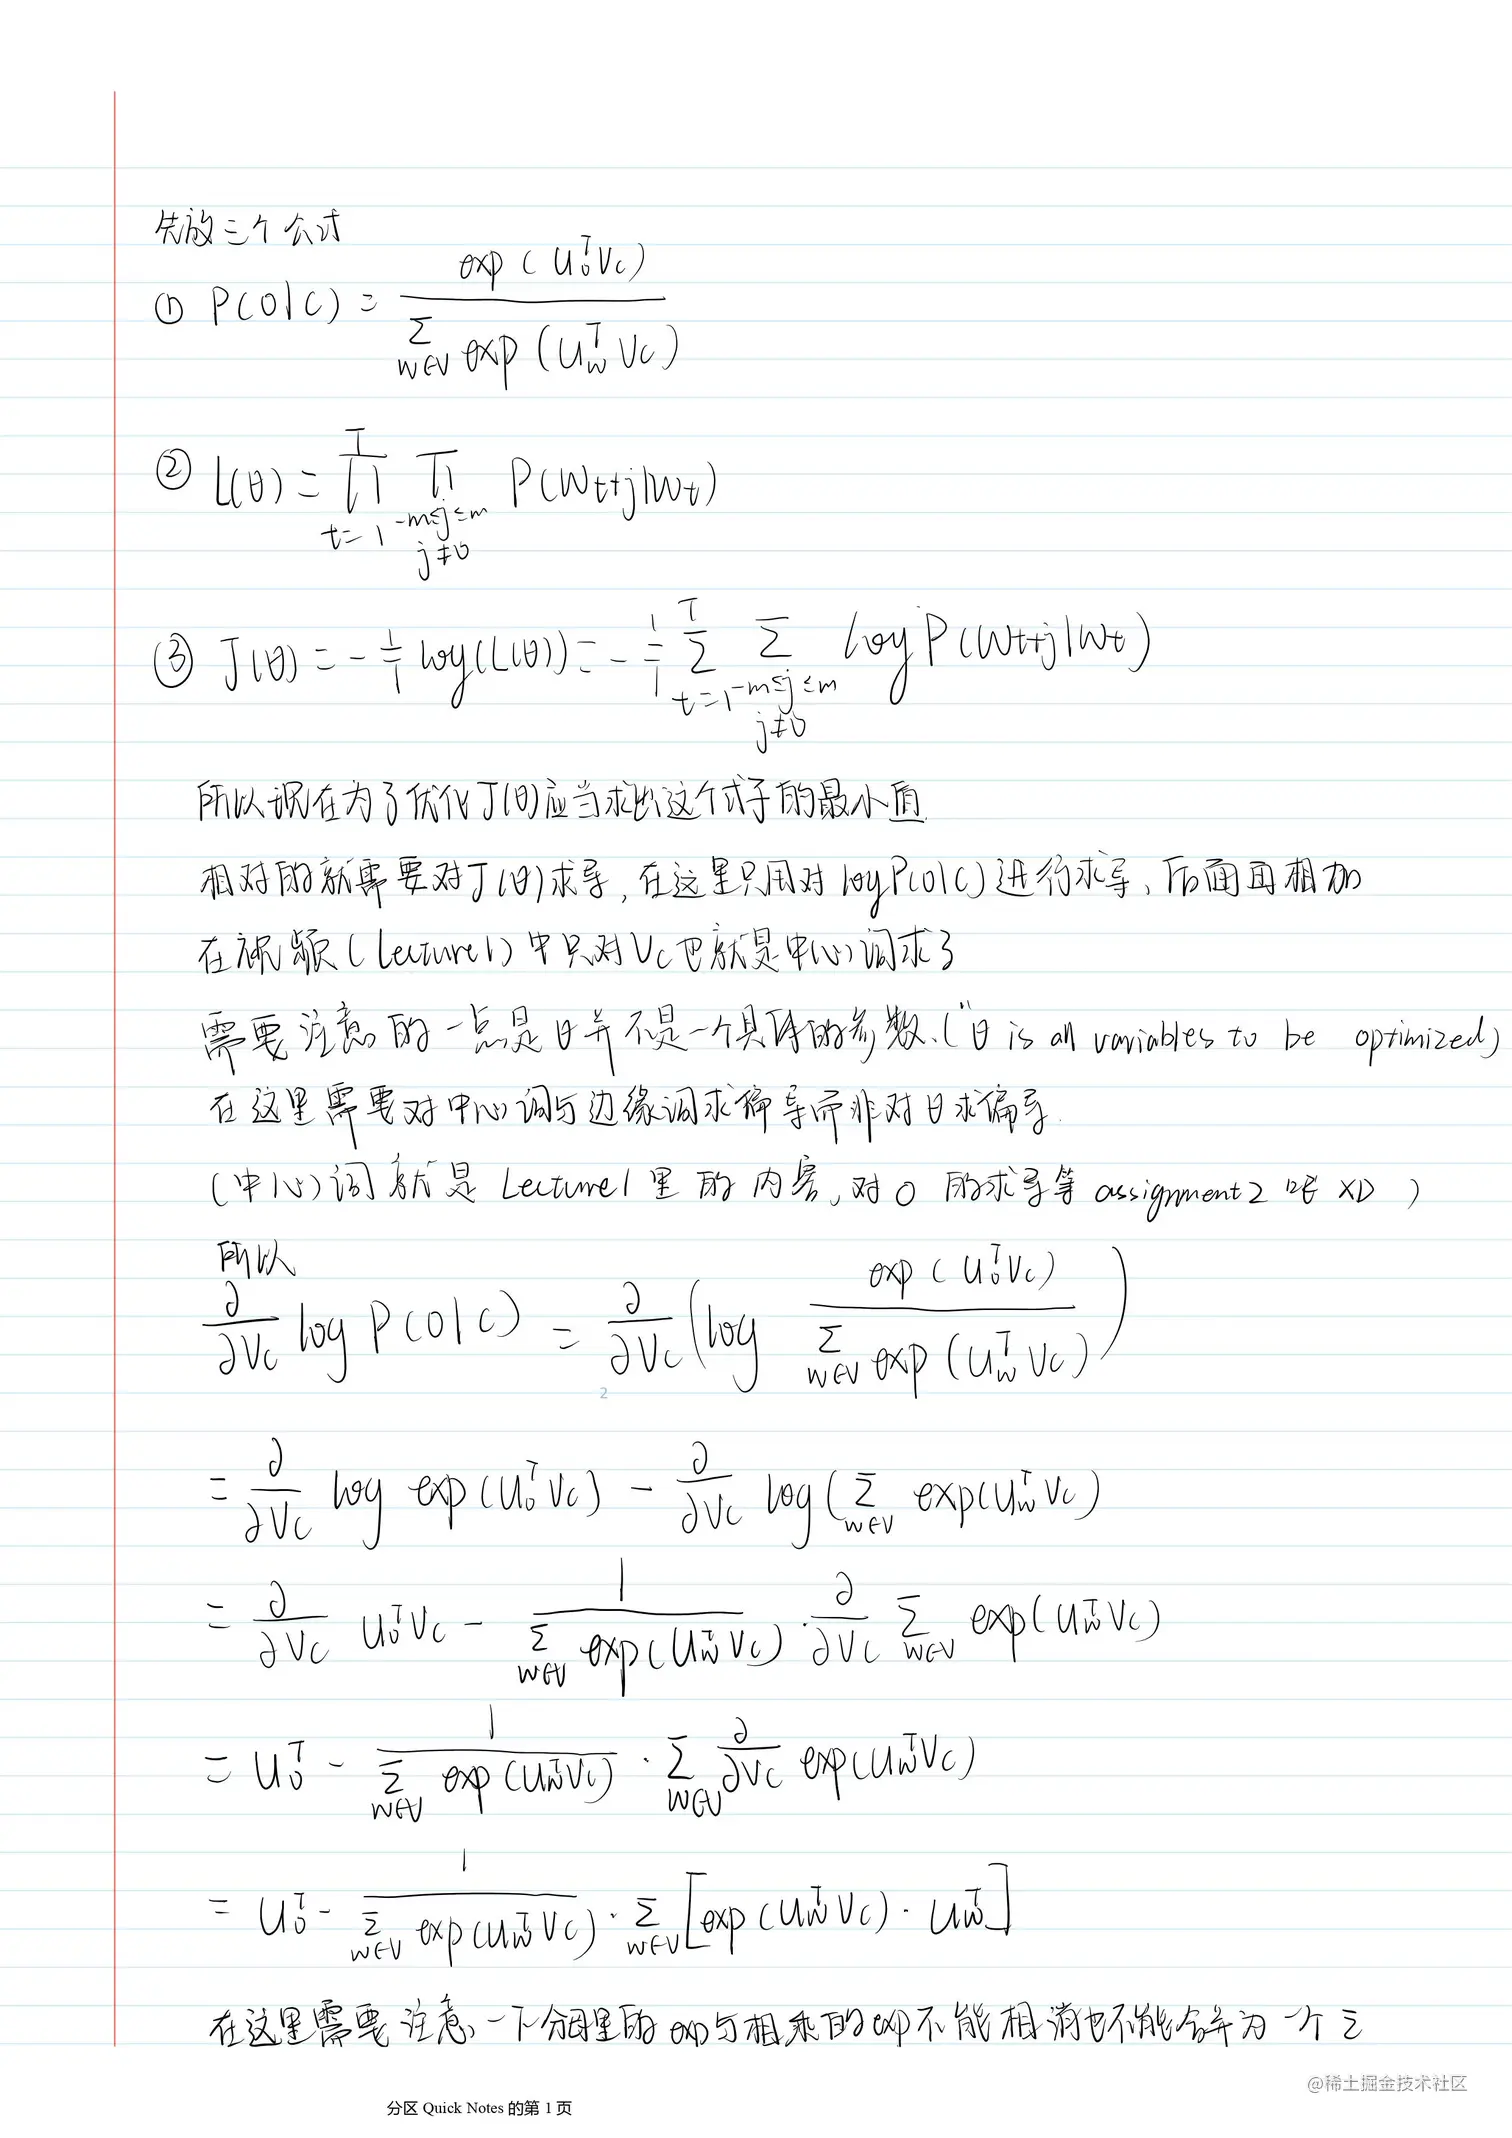 先放三个公式
① P(O|C) = exp(U_o^T V_c) / Σ_{w∈V} exp(U_w^T V_c)
② L(θ) = ∏_{t=1}^T ∏_{-m≤j≤m, j≠0} P(W_{t+j}|W_t)
③ J(θ) = -1/T log(L(θ)) = -1/T Σ_{t=1}^T Σ_{-m≤j≤m, j≠0} log P(W_{t+j}|W_t)
所以现在为了优化J(θ)应当求出这个式子的最小值
相对的就需要对J(θ)求导,在这里只用对logP(O|C)进行求导、后面再相加
在视频(Lecture1)中只对V_c也就是中心词求了
需要注意的一点是θ并不是一个具体的参数、("θ is all variables to be optimized)
在这里需要对中心词与边缘词求偏导而非对θ求偏导.
(中心词就是Lecture1里的内容,对O的求导等assignment2吧 XD )
所以
∂/∂V_c log P(O|C) = ∂/∂V_c (log exp(U_o^T V_c) / Σ_{w∈V} exp(U_w^T V_c))
2
= ∂/∂V_c log exp(U_o^T V_c) - ∂/∂V_c log(Σ_{w∈V} exp(U_w^T V_c)
= ∂/∂V_c U_o^T V_c - 1 / Σ_{w∈V} exp(U_w^T V_c) · ∂/∂V_c Σ_{w∈V} exp(U_w^T V_c)
= U_o^T - 1 / Σ_{w∈V} exp(U_w^T V_c) · Σ_{w∈V} ∂/∂V_c exp(U_w^T V_c)
= U_o^T - 1 / Σ_{w∈V} exp(U_w^T V_c) · Σ_{w∈V} [exp(U_w^T V_c) · U_w^T]
在这里需要注意一下分母里的exp与相乘的exp不能相消也不能合并为一个Σ
@稀土掘金技术社区
分区 Quick Notes 的第 1 页